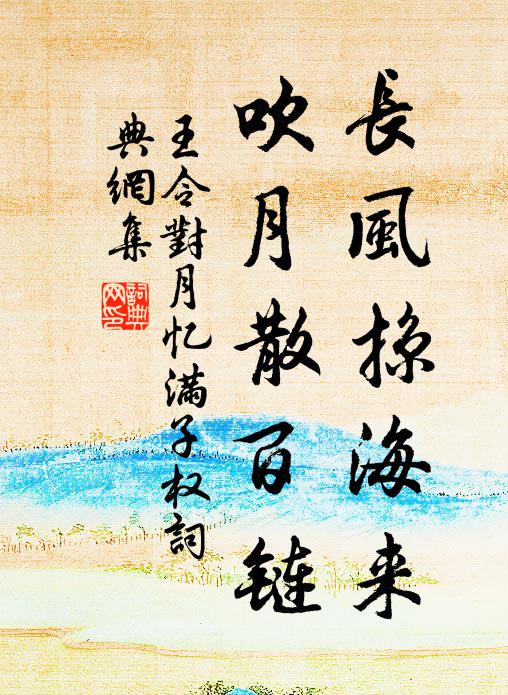 長風掠海来
吹月散百鏈
王令對月忆满子权詞
典網集
詞典
网印